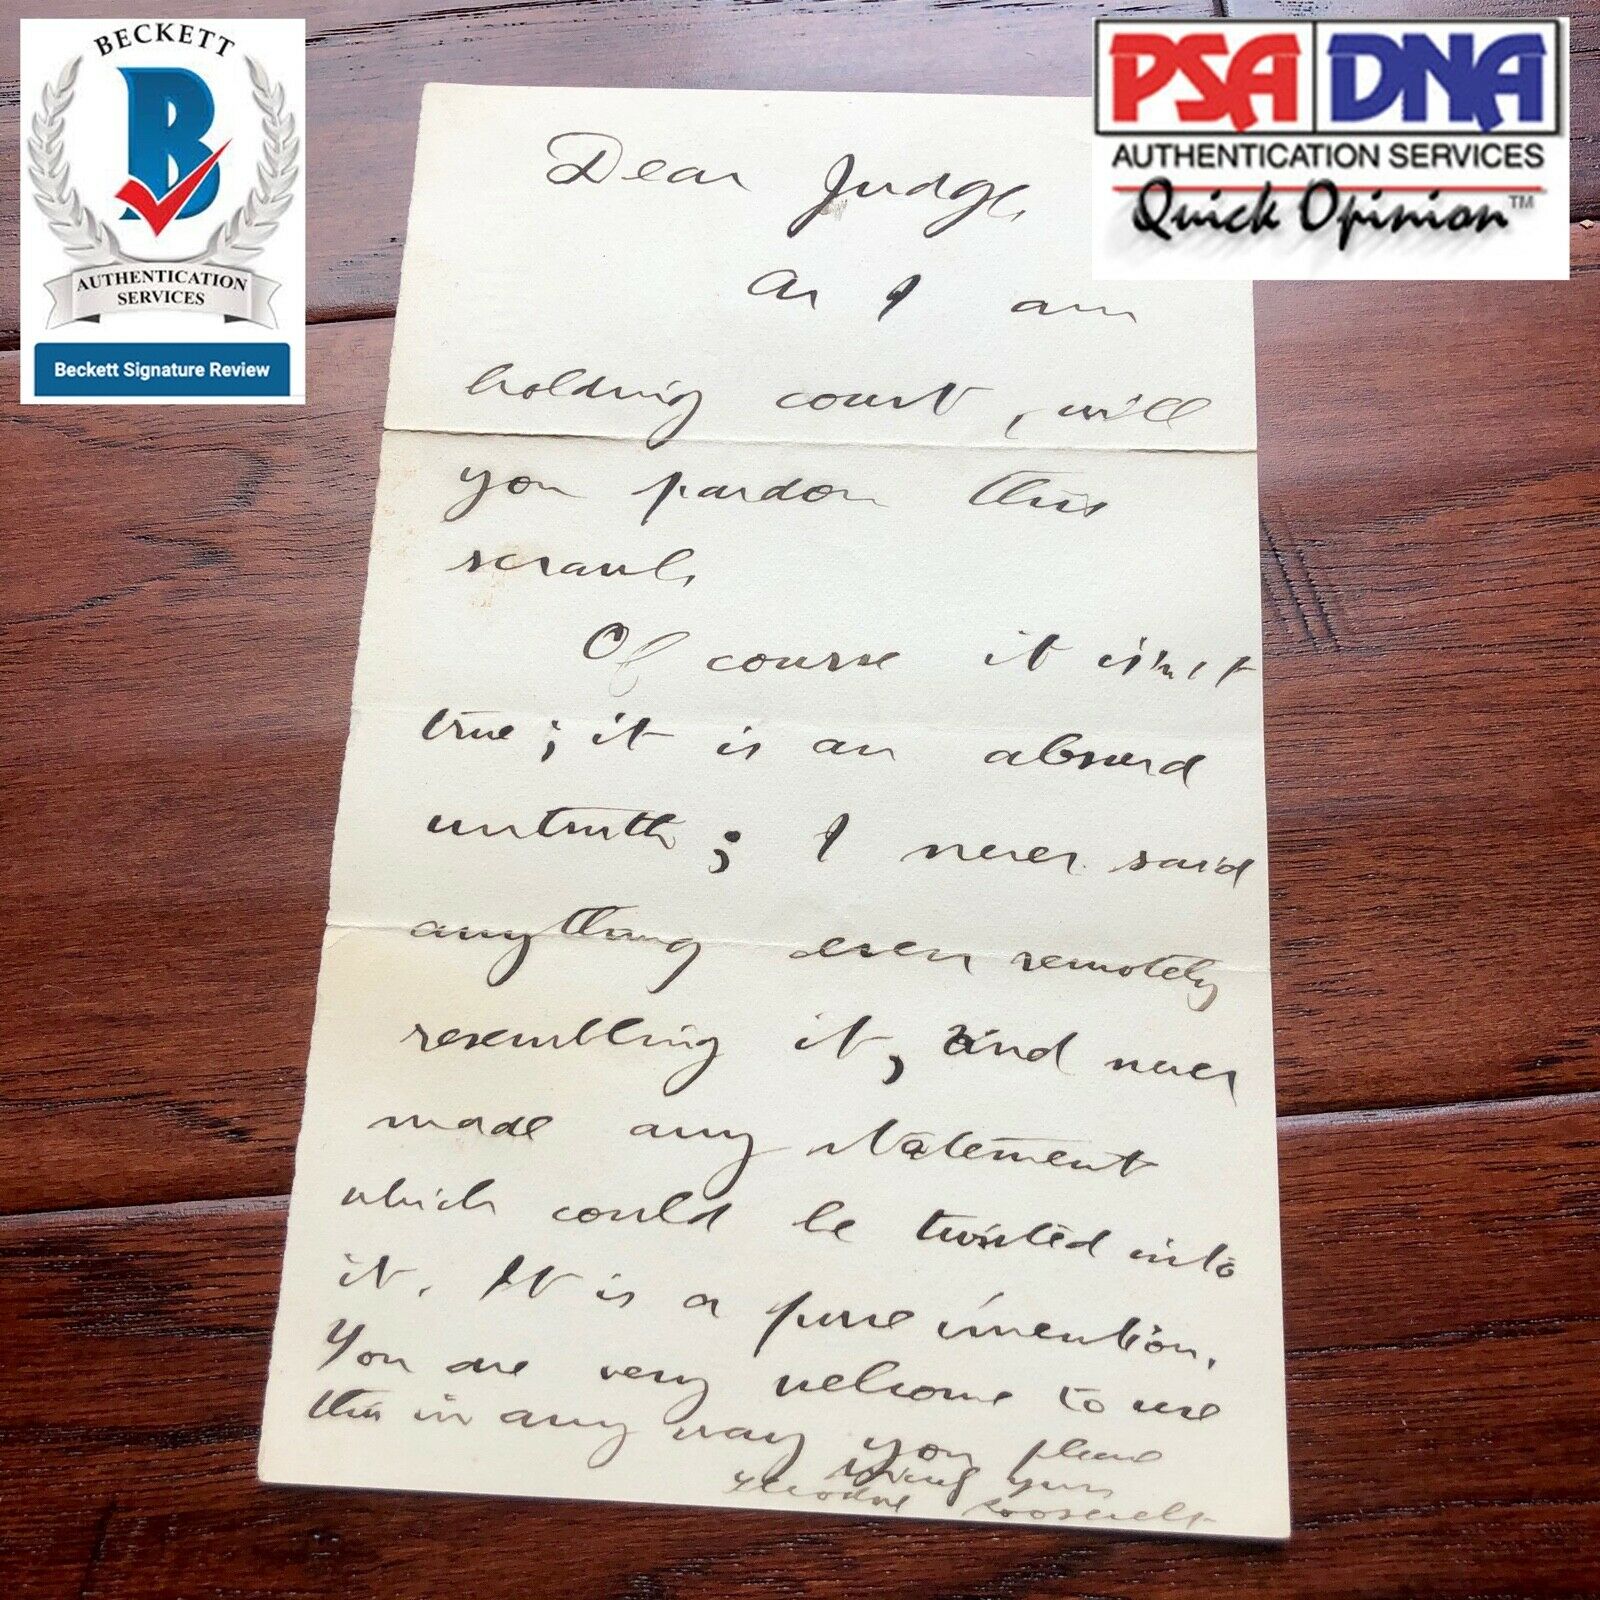 BECKETT
B
AUTHENTICATION
SERVICES
Beckett Signature Review
PSA DNA
AUTHENTICATION SERVICES
Quick Opinion™
Dear Judge,
As I am
holding court, will
you pardon this
scrawl.
Of course it isn't
true; it is an absurd
untruth; I never said
anything even remotely
resembling it, and never
made any statement
which could be twisted into
it. It is a pure invention.
You are very welcome to use
this in any way you please
yours
Theodore Roosevelt